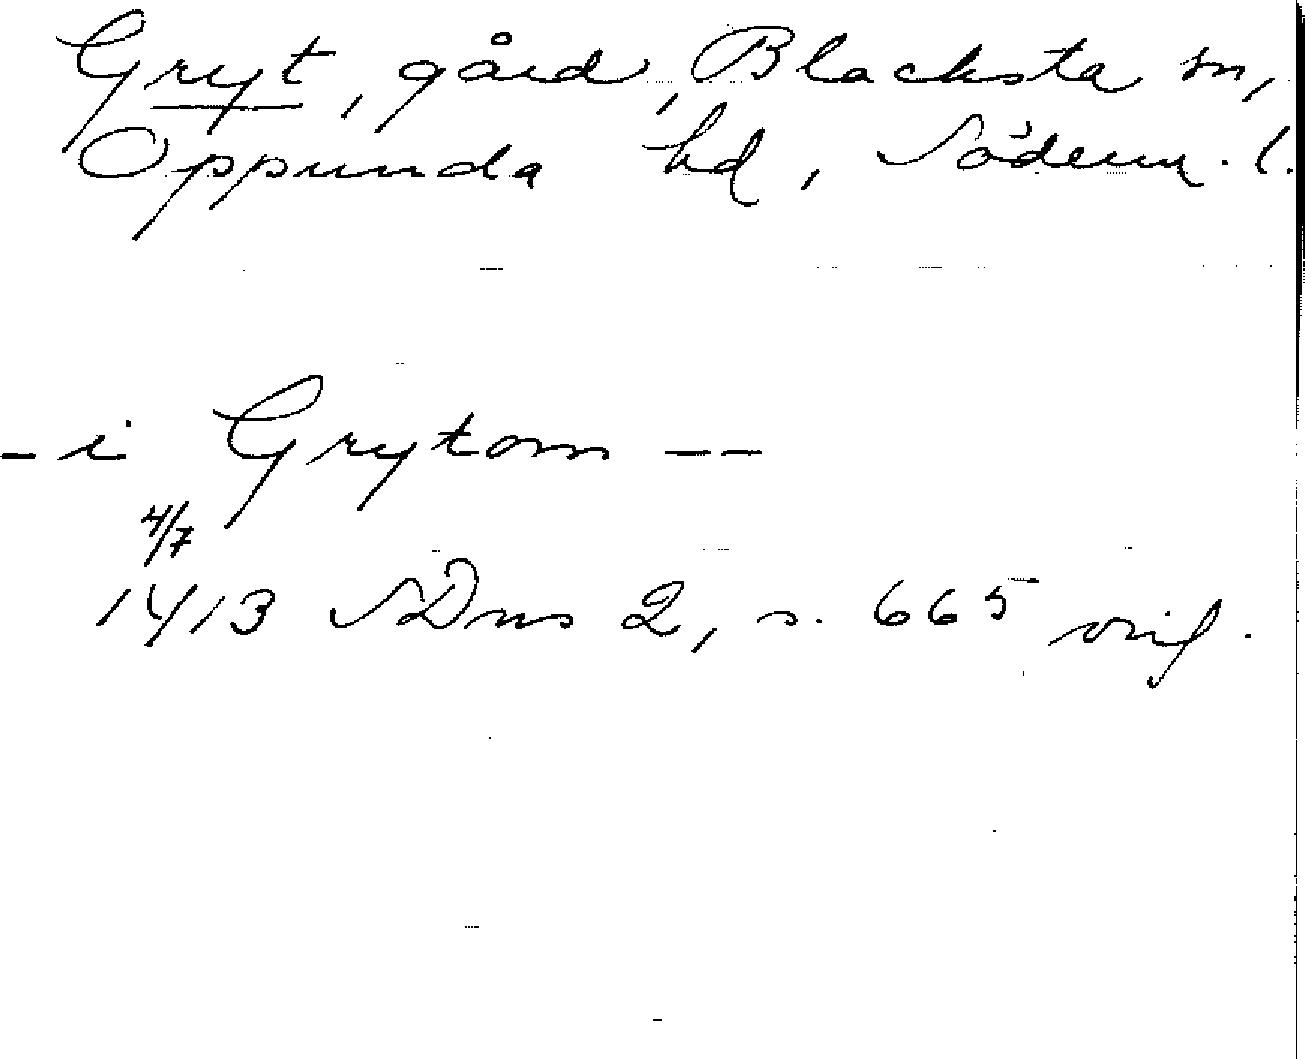 Gryt, gård, Blacksta sn,
Oppunda hd, Söderm. l.
- i Grytom --
4/7
1413 SDns 2, s. 665 orig.